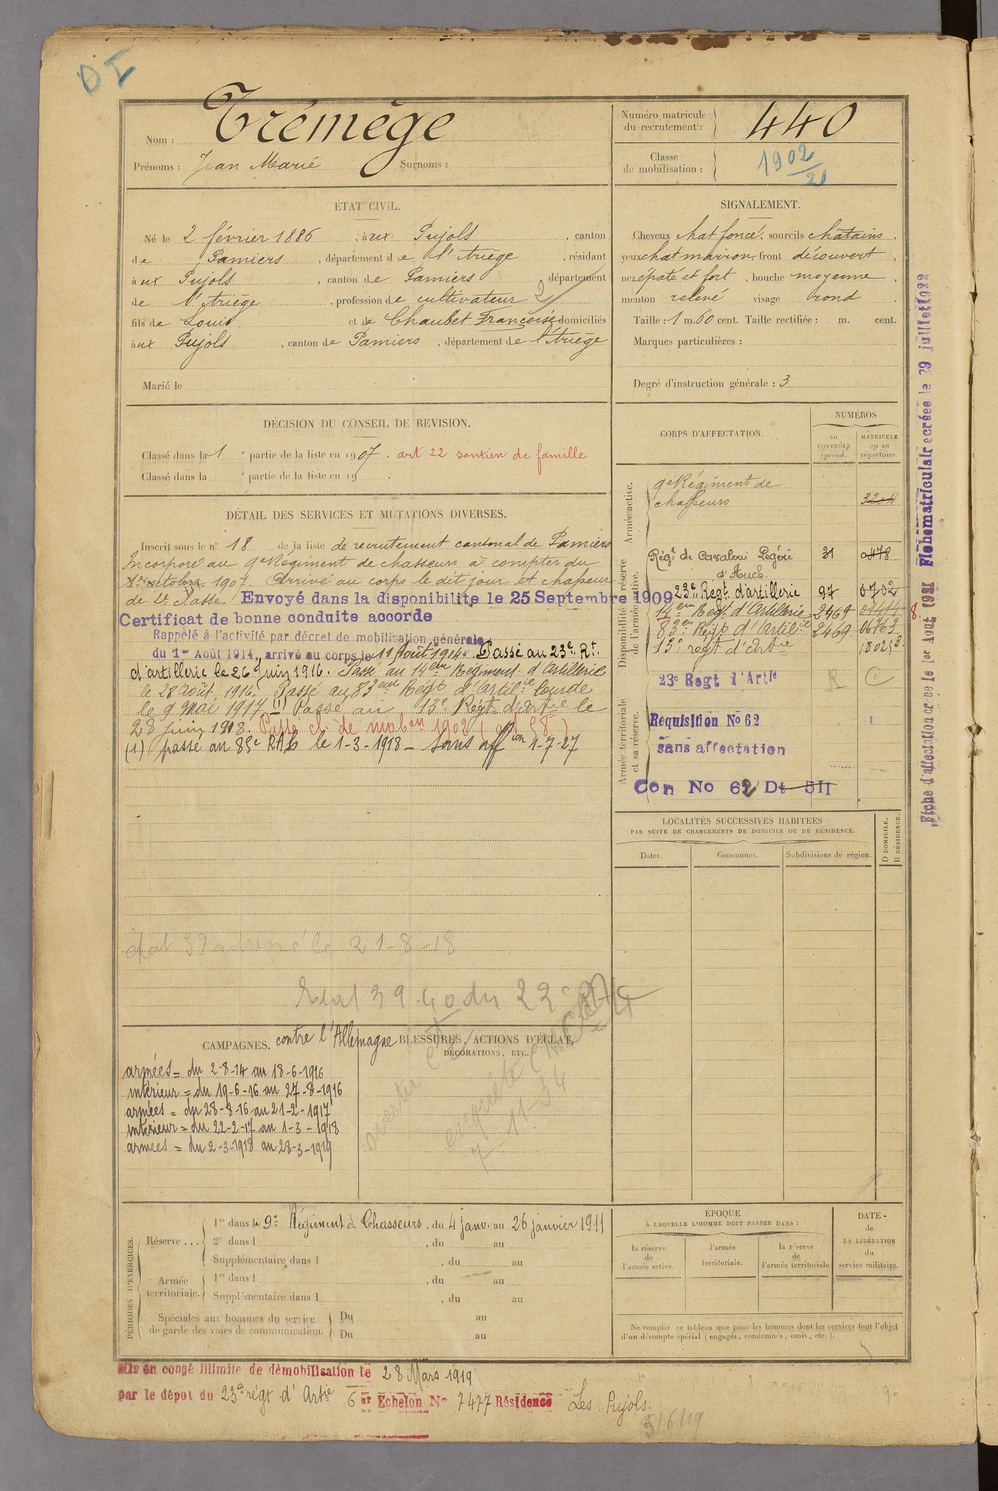 DI
Nom : Trémège
Prénoms : Jean Marie Surnoms :
Numéro matricule du recrutement : 440
Classe de mobilisation : 1902/2
ÉTAT CIVIL.
Né le 2 février 1886, à ux Pujols, canton
de Pamiers, département de l'Ariège, résidant
à ux Pujols, canton de Pamiers département
de l'Ariège, profession de cultivateur 2
fils de Louis et de Chaubet Françoise domiciliés
à ux Pujols, canton de Pamiers, département de l'Ariège
Marié le
SIGNALEMENT.
Cheveux chat foncé, sourcils châtains,
yeux chat marron, front découvert,
nez épaté et fort, bouche moyenne,
menton relevé visage rond.
Taille : 1 m. 60 cent. Taille rectifiée : m. cent.
Marques particulières :
Degré d'instruction générale : 3
DÉCISION DU CONSEIL DE REVISION.
Classé dans la 1 e partie de la liste en 1907. art 22 soutien de famille
Classé dans la e partie de la liste en 19 .
DÉTAIL DES SERVICES ET MUTATIONS DIVERSES.
Inscrit sous le n° 18 de la liste de recrutement cantonal de Pamiers
Incorporé au 9e Régiment de chasseurs à compter du
octobre 1907. Arrivé au corps le dit jour et chasseur
de 2e classe. Envoyé dans la disponibilité le 25 Septembre 1909
Certificat de bonne conduite accordé
Rappelé à l'activité par décret de mobilisation générale
du 1er Août 1914, arrivé au corps le 11 Août 1914. Passé au 23e Rt
d'artillerie le 26 Juin 1916. Passé au 14ème Régiment d'Artillerie
le 28 août 1916. Passé au 83ème Regt d'Artil.ie lourde
le 9 mai 1917 (1) Passé au 13e Regt d'Artie le
28 juin 1918. Passé cl. de mobon 1902 (art 58)
(1) passé au 85e RAL le 1-3-1918 - sans affon 1-7-27
état 39 adressé le 21-8-18
Etat 39-40 du 22e
CORPS D'AFFECTATION.
NUMÉROS
au CONTRÔLE spécial.
MATRICULE ou au répertoire.
Armée active.
9e Régiment de
chasseurs
Disponibilité ou réserve de l'armée active.
Régt de Cavalerie Légère 31 0478
d'Auch.
23e Regt d'artillerie 97 0702
14ème Regt d'Artillerie 2469
83ème Regt d'Artil.ie 2469
13e régt d'Artie
Armée territoriale et sa réserve.
23e Regt d'Artie
Requisition No 62
sans affectation
Con No 62 Dt 511
Fiche d'affectation créée le 1er Août 1921 Fiche matriculaire créée le 29 juillet 1922
LOCALITÉS SUCCESSIVES HABITÉES
PAR SUITE DE CHANGEMENTS DE DOMICILE OU DE RÉSIDENCE.
Dates. Communes. Subdivisions de région.
D DOMICILE.
R RÉSIDENCE.
CAMPAGNES. contre l'Allemagne
armées = du 2-8-14 au 18-6-1916
intérieur = du 19-6-16 au 27-8-1916
armées = du 28-8-16 au 21-2-1917
intérieur = du 22-2-17 au 1-3-1918
armées = du 2-3-1918 au 28-3-1919
BLESSURES, ACTIONS D'ÉCLAT,
DÉCORATIONS, ETC.
enquête
7-11-34
PÉRIODES D'EXERCICES.
Réserve... 1re dans le 9e Régiment de Chasseurs, du 4 janv. au 26 janvier 1911
2e dans l , du au
Supplémentaire dans l , du au
Armée territoriale. 1re dans l , du au
Supplémentaire dans l , du au
Spéciales aux hommes du service de garde des voies de communication. Du au
Du au
ÉPOQUE
À LAQUELLE L'HOMME DOIT PASSER DANS :
la réserve de l'armée active.
l'armée territoriale.
la réserve de l'armée territoriale
DATE de LA LIBÉRATION du service militaire.
Ne remplir ce tableau que pour les hommes dont les services font l'objet
d'un décompte spécial (engagés, condamnés, omis, etc.).
Mis en congé illimité de démobilisation le 28 Mars 1919
par le dépôt du 23e régt d'Artie 6er Echelon No 7477 Résidence Les Pujols.